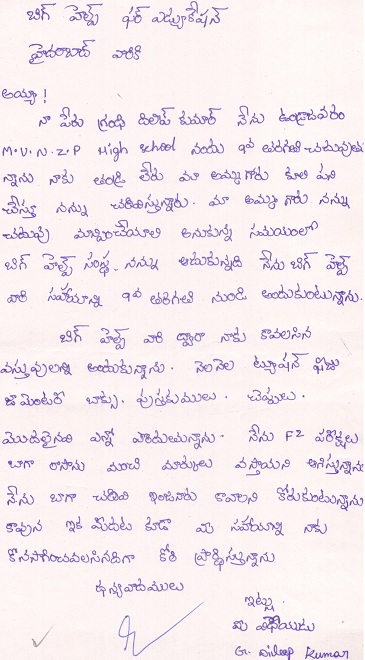 బిగ్ హెల్ప్ ఫర్ ఎడ్యుకేషన్
హైదరాబాద్ వారికి
అయ్యా!
నా పేరు గ్రంధి దిలీప్ కుమార్ నేను ఉండ్రాజవరం
M.V.N.Z.P High School నందు 10వ తరగతి చదువుతు
న్నాను నాకు తండ్రి లేరు మా అమ్మగారు కూలి పని
చేస్తూ నన్ను చదివిస్తున్నారు. మా అమ్మ గారు నన్ను
చదువు మాన్పించేయాలి అనుకున్న సమయంలో
బిగ్ హెల్ప్ సంస్థ నన్ను ఆదుకున్నది నేను బిగ్ హెల్ప్
వారి సహాయాన్ని 9వ తరగతి నుండి అందుకుంటున్నాను.
బిగ్ హెల్ప్ వారి ద్వారా నాకు కావలసిన
వస్తువులన్ని అందుకున్నాను. నెలనెల ట్యూషన్ ఫీజు
జామెంటరీ బాక్సు. పుస్తకములు. చెప్పులు.
మొదలైనవి ఎన్నో పొందుతున్నాను. నేను F2 పరీక్షలు
బాగా రాసాను మంచి మార్కులు వస్తాయని ఆశిస్తున్నాను
నేను బాగా చదివి ఇంజనీరు కావాలని కోరుకుంటున్నాను
కావున ఇక మీదట కూడా మీ సహాయాన్ని నాకు
కొనసాగించవలసినదిగా కోరి ప్రార్థిస్తున్నాను
ధన్యవాదములు
ఇట్లు.
మీ విధేయుడు
G. Dileep Kumar